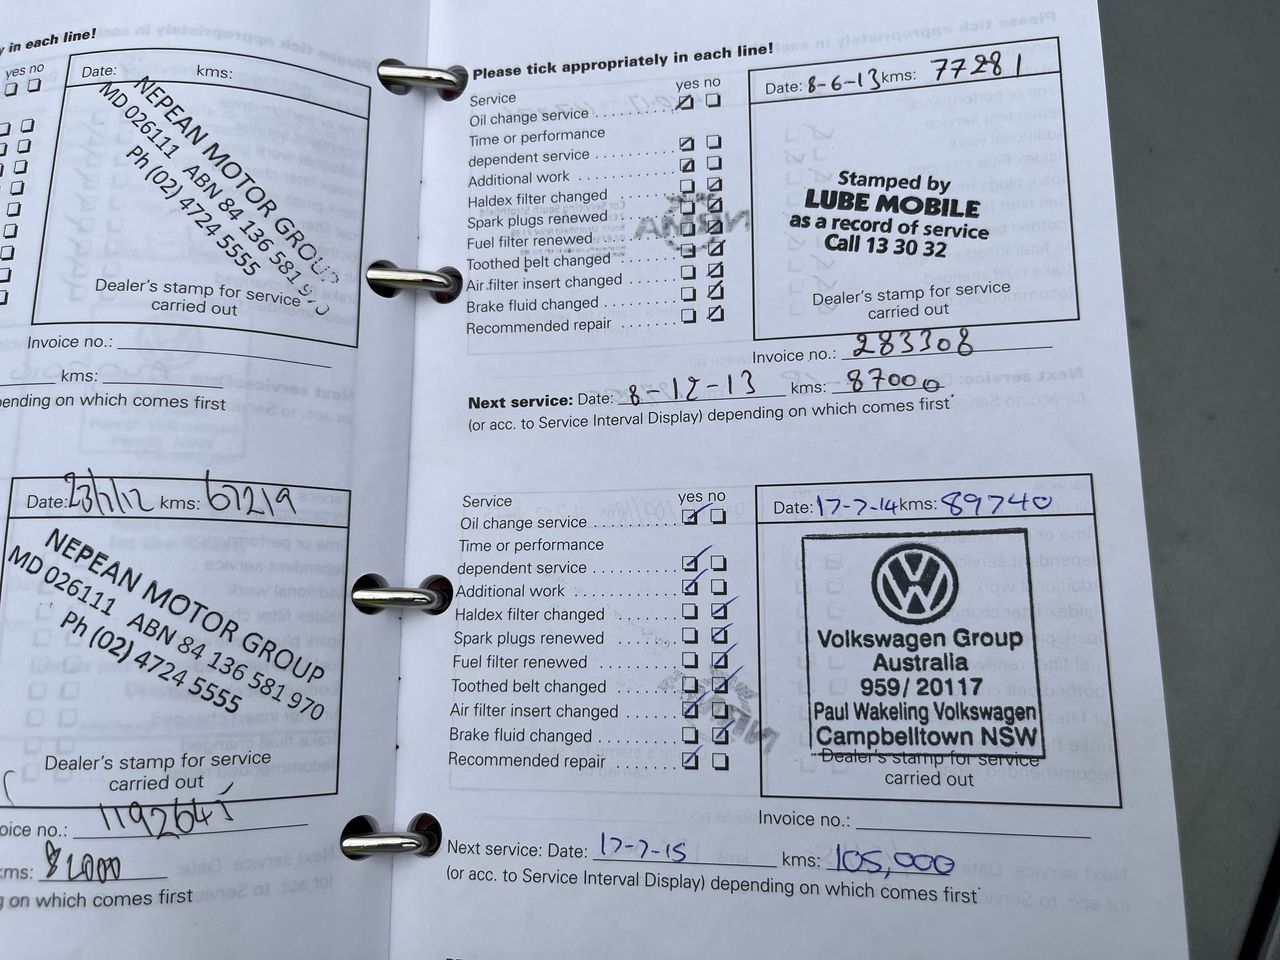 in each line!
yes no
Date: kms:
NEPEAN MOTOR GROUP
MD 026111 ABN 84 136 581 970
Ph (02) 4724 5555
Dealer's stamp for service
carried out
Invoice no.:
kms:
depending on which comes first
Date: 23/7/12 kms: 67219
NEPEAN MOTOR GROUP
MD 026111 ABN 84 136 581 970
Ph (02) 4724 5555
Dealer's stamp for service
carried out
kms:
on which comes first
Please tick appropriately in each line!
yes no
Service
Oil change service
Time or performance
dependent service
Additional work
Haldex filter changed
Spark plugs renewed
Fuel filter renewed
Toothed belt changed
Air filter insert changed
Brake fluid changed
Recommended repair
Date: 8-6-13 kms: 77281
Stamped by
LUBE MOBILE
as a record of service
Call 13 30 32
Dealer's stamp for service
carried out
Invoice no.: 283308
Next service: Date: 8-12-13 kms: 87000
(or acc. to Service Interval Display) depending on which comes first
yes no
Service
Oil change service
Time or performance
dependent service
Additional work
Haldex filter changed
Spark plugs renewed
Fuel filter renewed
Toothed belt changed
Air filter insert changed
Brake fluid changed
Recommended repair
Date: 17-7-14 kms: 89740
Volkswagen Group
Australia
959/ 20117
Paul Wakeling Volkswagen
Campbelltown NSW
Dealer's stamp for service
carried out
Invoice no.:
Next service: Date: 17-7-15 kms: 105,000
(or acc. to Service Interval Display) depending on which comes first